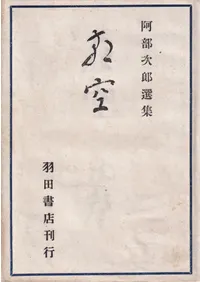 阿部次郎選集
羽田書店刊行